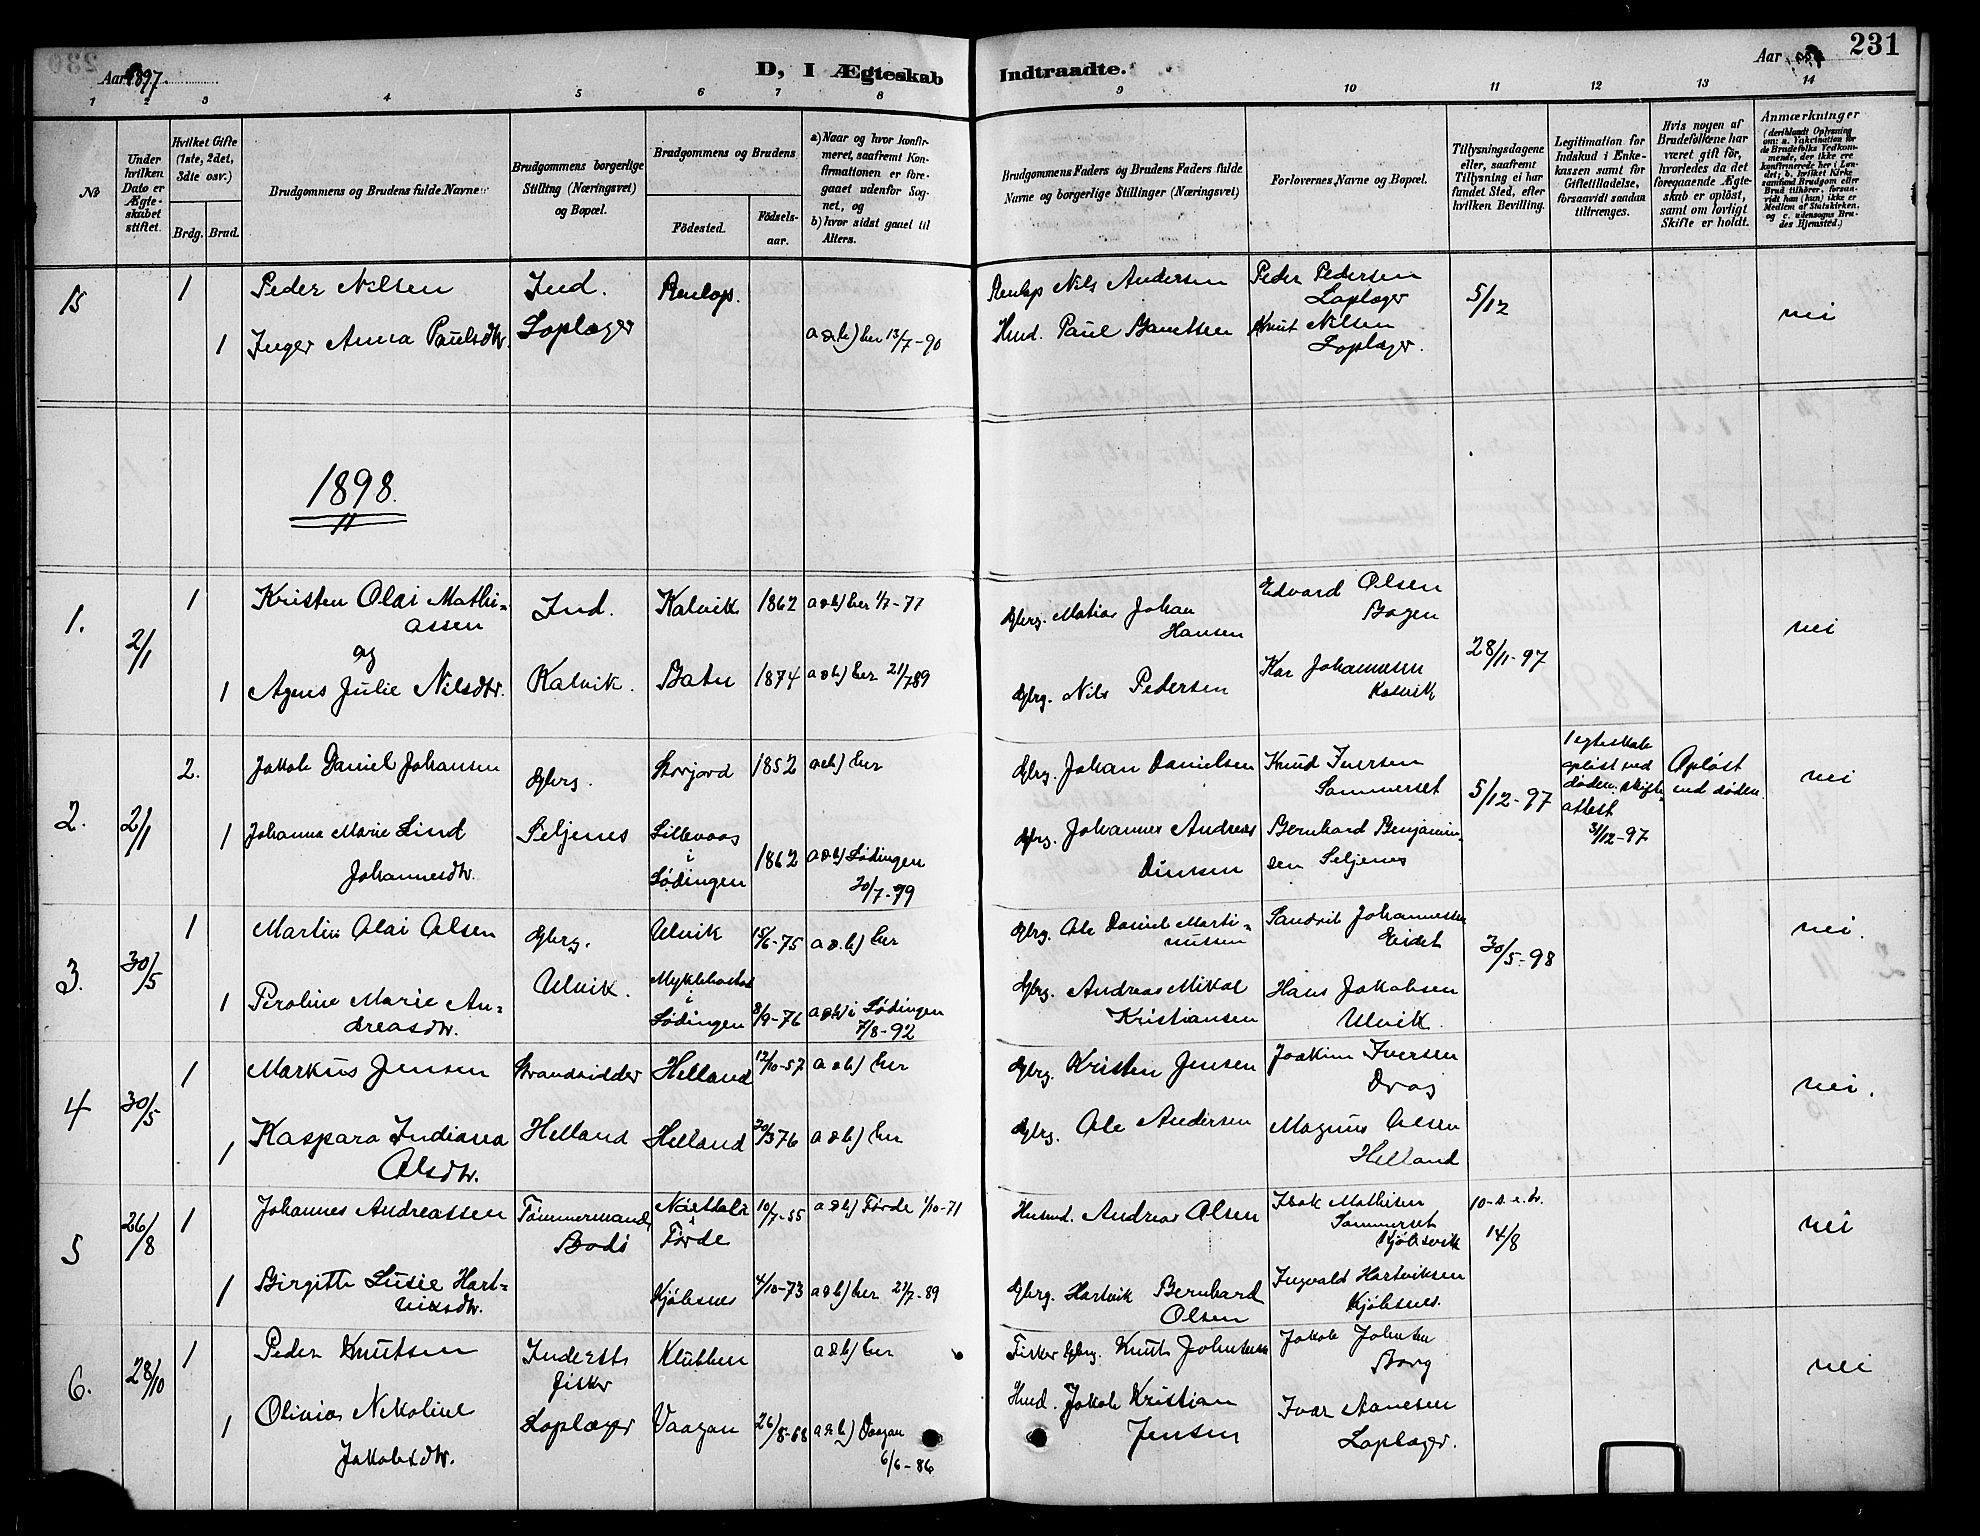 231
Aar 1897.
D, I Ægteskab Indtraadte.
Aar
1 2 3 4 5 6 7 8 9 10 11 12 13 14
No
Under hvilken Dato er Ægteskabet stiftet.
Hvilket Gifte (1ste, 2det, 3die osv.)
Brdg. Brud.
Brudgommens og Brudens fulde Navne.
Brudgommens borgerlige Stilling (Næringsvei) og Bopæl.
Brudgommens og Brudens
Fødested. Fødselsaar.
a) Naar og hvor konfirmeret, saafremt Konfirmationen er foregaaet udenfor Sognet, og b) hvor sidst gaaet til Alters.
Brudgommens Faders og Brudens Faders fulde Navne og borgerlige Stillinger (Næringsvei)
Forlovernes Navne og Bopæl.
Tillysningsdagene eller, saafremt Tillysning ei har fundet Sted, efter hvilken Bevilling.
Legitimation for Indskud i Enkekassen samt for Giftetilladelse, forsaavidt saadan tiltrænges.
Hvis nogen af Brudefolkene har været gift før, hvorledes da det foregaaende Ægteskab er opløst, samt om lovligt Skifte er holdt.
Anmærkninger (deriblandt Oplysning om: a. Vakcination for de Brudefolks Vedkommende, der ikke ere konfirmerede her i Landet; b. hvilket Kirkesamfund Brudgom eller Brud tilhører, forsaavidt han (hun) ikke er Medlem af Statskirken, og c. udensogns Brudes Hjemsted.)
15 1 Peder Nilsen Ind. Nils Andersen Peder Pedersen 5/12 nei
Loplæger
1 Inger Anna Paulsdtr. Loplæger a & b) her 13/7-90 Paul Knut Nilsen
Loplæger.
1898.
1. 2/1 1 Kristen Olai Mathiassen Ind. Kalvik 1862 a & b) her 1/7-77 Gbrg. Matias Johan Hansen Edvard Olsen Bogen 28/11-97 nei
og
1 Agnes Julie Nilsdtr. Kalvik. 1874 a & b) her 21/7 89 Gbrg. Nils Pedersen Johannesen Kalvik
2. 2/1 2. Jakob Daniel Johansen Gbrg. Storjord 1852 a & b) her Gbrg. Johan Danielsen Knud Iversen Sommerset 5/12-97 1 egteskab opløst ved døden. skifteattest 31/12-97 Opløst ved døden. nei
1 Johanna Marie Lind Johannesdtr. Seljenes Lillevaag i Lødingen 1862 a & b) Lødingen 20/7-79 Gbrg. Johannes Andreas Bernhard Benjaminsen Seljenes
3. 30/5 1 Martin Olai Olsen Gbrg. Ulvik 15/6-75 a & b) her Gbrg. Ole Daniel Martinussen Johannessen Eidet 30/5-98 nei.
1 Peroline Marie Andreasdtr. Ulvik. i Lødingen 8/9-76 a & b) i Lødingen 7/8-92 Gbrg. Andreas Mikal Kristiansen Hans Jakobsen Ulvik
4 30/5 1 Markus Jensen Strandsidder Helland 12/10-57 a & b) her Gbrg. Kristen Jensen Joakim Iversen Drag nei.
1 Kaspara Indiana Olsdtr. Helland Helland 20/3 76 a & b) her Gbrg. Ole Andersen Magnus Olsen Helland
5 26/8 1 Johannes Andreassen Tømmermand, Bodø Førde 10/7-55 a & b) Førde 1/10-71 Husmd. Andreas Olsen Isak Mathisen Sommerset Kjøbsvik 14/8 nei
1 Birgitte Lusie Hartviksdtr. Kjøbsnes 4/10-73 a & b) her 21/7-89 Gbrg. Hartvik Bernhard Olsen Ingvald Hartviksen Kjøbsnes.
6. 28/10 1 Peder Knutsen Inderst, fisker Klubben a & b) her Fisker Gbrg. Knut Johnsen Jakob Johnsen Borg nei
1 Olivia Nikoline Jakobsdtr. Loplæger Vaagan 26/8-68 a & b) Vaagan 6/6-86 Jakob Kristian Jensen Ivar Aanesen Loplæger.